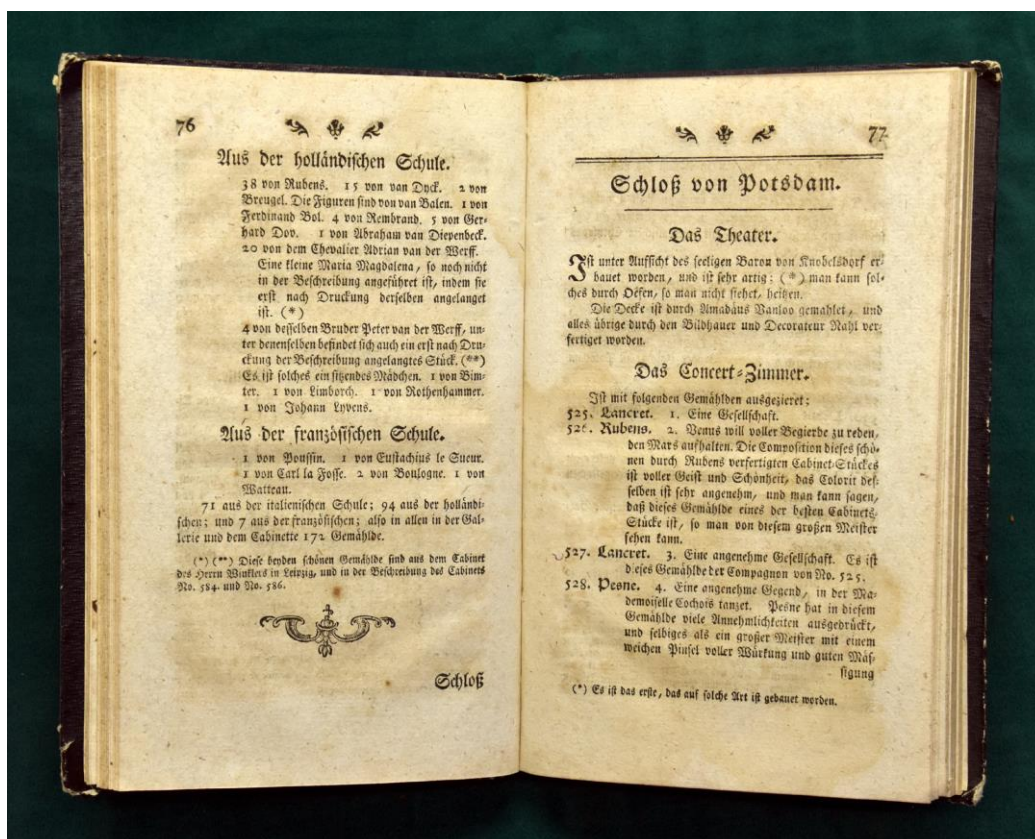 76
Aus der holländischen Schule.
38 von Rubens. 15 von van Dyck. 2 von
Breugel. Die Figuren sind von van Balen. 1 von
Ferdinand Bol. 4 von Rembrand. 5 von Ger-
hard Dov. 1 von Abraham van Diepenbeck.
20 von dem Chevalier Adrian van der Werff.
Eine kleine Maria Magdalena, so noch nicht
in der Beschreibung angeführet ist, indem sie
erst nach Druckung derselben angelanget
ist. (*)
4 von desselben Bruder Peter van der Werff, un-
ter denenselben befindet sich auch ein erst nach Dru-
ckung der Beschreibung angelangtes Stück. (**)
Es ist solches ein sitzendes Mädchen. 1 von Bim-
ter. 1 von Limborch. 1 von Rothenhammer.
1 von Johann Lyvens.
Aus der französischen Schule.
1 von Poussin. 1 von Eustachius le Sueur.
1 von Carl la Fosse. 2 von Boulogne. 1 von
Watteau.
71 aus der italienischen Schule; 94 aus der holländi-
schen; und 7 aus der französischen; also in allen in der Gal-
lerie und dem Cabinette 172 Gemählde.
(*) (**) Diese beyden schönen Gemählde sind aus dem Cabinet
des Herrn Winklers in Leipzig, und in der Beschreibung des Cabinets
No. 584. und No. 586.
Schloß
77
Schloß von Potsdam.
Das Theater.
Ist unter Aufsicht des seeligen Baron von Knobelsdorf er-
bauet worden, und ist sehr artig; (*) man kann sol-
ches durch Oefen, so man nicht siehet, heitzen.
Die Decke ist durch Amadäus Vanloo gemahlet, und
alles übrige durch den Bildhauer und Decorateur Nahl ver-
fertiget worden.
Das Concert-Zimmer.
Ist mit folgenden Gemählden ausgezieret:
525. Lancret. 1. Eine Gesellschaft.
526. Rubens. 2. Venus will voller Begierde zu reden,
den Mars aufhalten. Die Composition dieses schö-
nen durch Rubens verfertigten Cabinet-Stückes
ist voller Geist und Schönheit, das Colorit des-
selben ist sehr angenehm, und man kann sagen,
daß dieses Gemählde eines der besten Cabinets-
Stücke ist, so man von diesem großen Meister
sehen kann.
527. Lancret. 3. Eine angenehme Gesellschaft. Es ist
dieses Gemählde der Compagnon von No. 525.
528. Pesne. 4. Eine angenehme Gegend, in der Ma-
demoiselle Cochois tanzet. Pesne hat in diesem
Gemählde viele Annehmlichkeiten ausgedrückt,
und selbiges als ein großer Meister mit einem
weichen Pinsel voller Würkung und guten Mäs-
sigung
(*) Es ist das erste, das auf solche Art ist gebauet worden.